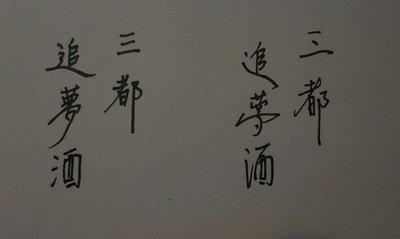 三都
追夢酒
三都
追夢酒